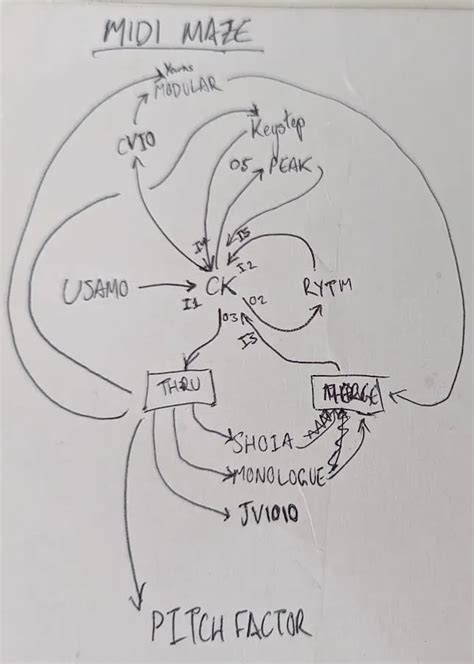 MIDI MAZE
MODULAR
CVIO
Keystep
O5 PEAK
I4 I5
I2
USAMO
I1
CK
RYTM
O2
O3
I3
THRU
MERGE
SHOIA
MONOLOGUE
JV1010
PITCH FACTOR